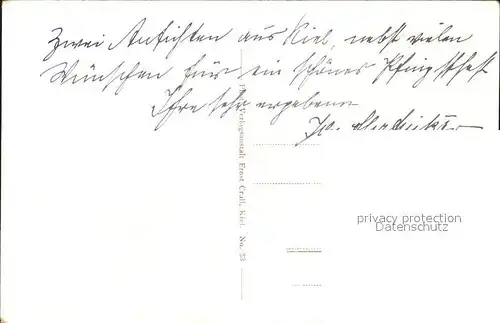 Zwei Ansichten aus Kiel, nebst vielen
Wünschen für ein schönes Pfingstfest
Ihre sehr ergebene
Verlagsanstalt Ernst Crall, Kiel. No. 23
privacy protection
Datenschutz